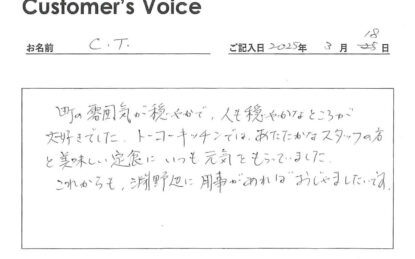 Customer's Voice
お名前 C.T. ご記入日 2025年 3月 18日
町の雰囲気が穏やかで、人も穏やかなところが
大好きでした。トーコーキッチンでは、あたたかなスタッフの方
と美味しい定食に いつも元気をもらっていました。
これからも、淵野辺に用事があればおじゃましたいです。